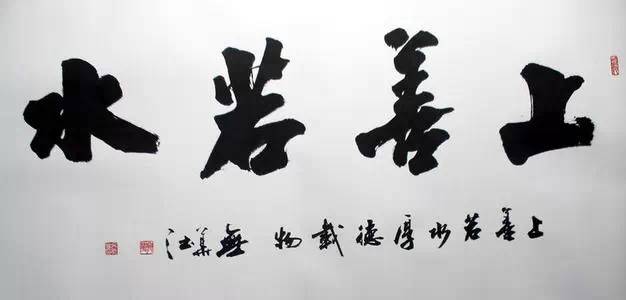 上善若水
上善若水厚德載物 無